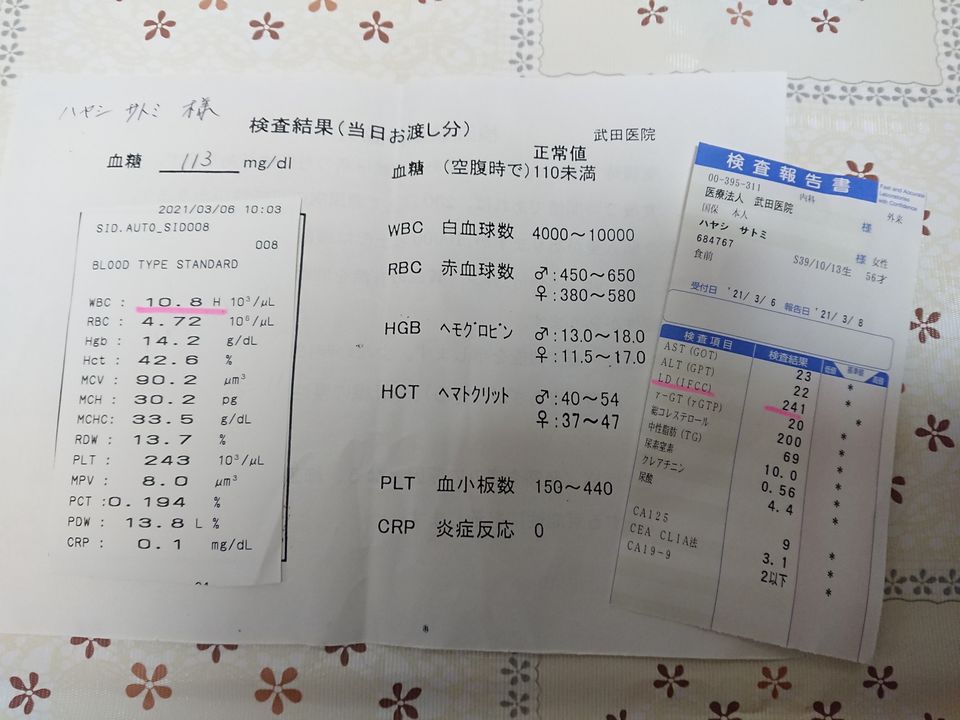 ハヤシ サトミ 様
検査結果(当日お渡し分)
武田医院
血糖 113 mg/dl
正常値
血糖 (空腹時で)110未満
WBC 白血球数 4000~10000
RBC 赤血球数 ♂:450~650
♀:380~580
HGB ヘモグロビン ♂:13.0~18.0
♀:11.5~17.0
HCT ヘマトクリット ♂:40~54
♀:37~47
PLT 血小板数 150~440
CRP 炎症反応 0
2021/03/06 10:03
SID.AUTO_SID008
008
BLOOD TYPE STANDARD
WBC : 10.8 H 10³/µL
RBC : 4.72 10⁶/µL
Hgb : 14.2 g/dL
Hct : 42.6 %
MCV : 90.2 µm³
MCH : 30.2 pg
MCHC: 33.5 g/dL
RDW : 13.7 %
PLT : 243 10³/µL
MPV : 8.0 µm³
PCT :0.194 %
PDW : 13.8 L %
CRP : 0.1 mg/dL
検査報告書
Fast and Accurate
Laboratories
with Confidence
00-395-311 内科 外来
医療法人 武田医院 様
国保 本人
ハヤシ サトミ 様 女性
684767
食前 S39/10/13生 56才
受付日 '21/3/6 報告日 '21/3/8
検査項目 検査結果 低値 基準値 高値
AST(GOT) 23 *
ALT(GPT) 22 *
LD(IFCC) 241 *
γ-GT(γGTP) 20 *
総コレステロール 200 *
中性脂肪(TG) 69 *
尿素窒素 10.0 *
クレアチニン 0.56 *
尿酸 4.4 *
CA125 9 *
CEA CLIA法 3.1 *
CA19-9 2以下 *